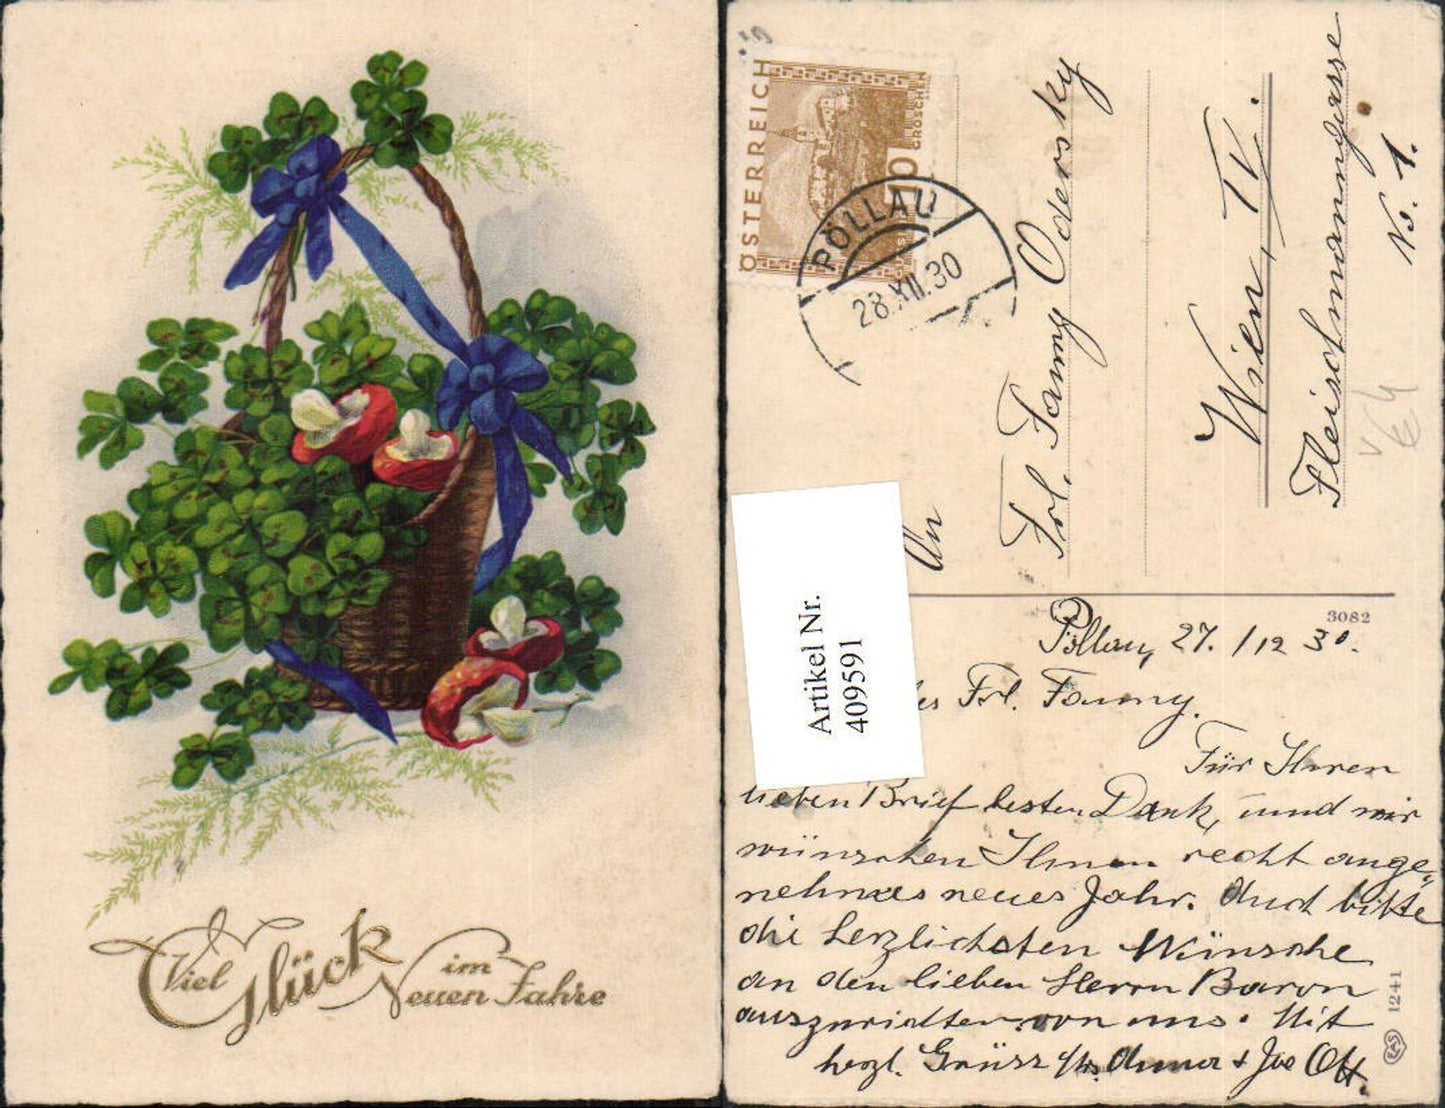 Viel Glück im
Neuen Jahre
ÖSTERREICH
10
GROSCHEN
PÖLLAU
28.XII.30
An
Frl. Fanny Odersky
Wien, IV.
Fleischmanngasse
No. 1.
Artikel Nr.
409591
3082
Pöllau, 27./12 30.
Frl. Fanny.
Für Ihren
lieben Brief besten Dank, und mir
wünschen Ihnen recht ange-
nehmes neues Jahr. Auch bitte
die herzlichsten Wünsche
an den lieben Herrn Baron
auszurichten von uns. Mit
herzl. Grüss Anna + Joe Ott.
1241
EAS